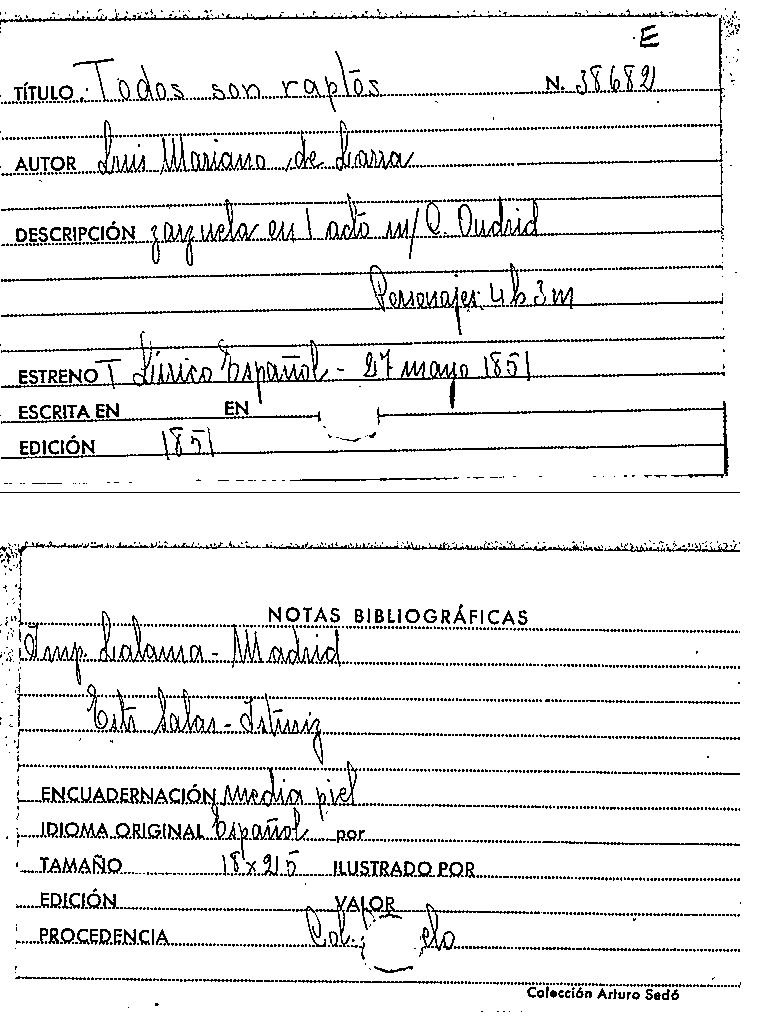 E
TÍTULO. Todos son raptos N. 38682
AUTOR Luis Mariano de Larra
DESCRIPCIÓN zarzuela en 1 acto m/ C. Oudrid
Personajes 4 h 3 m
ESTRENO T Lírico Español - 27 mayo 1851
ESCRITA EN EN
EDICIÓN 1851
NOTAS BIBLIOGRÁFICAS
Imp. Lalama - Madrid
Salas - Isturiz
ENCUADERNACIÓN Media piel
IDIOMA ORIGINAL Español por
TAMAÑO 18 x 215 ILUSTRADO POR
EDICIÓN VALOR
PROCEDENCIA Col.
Colección Arturo Sedó